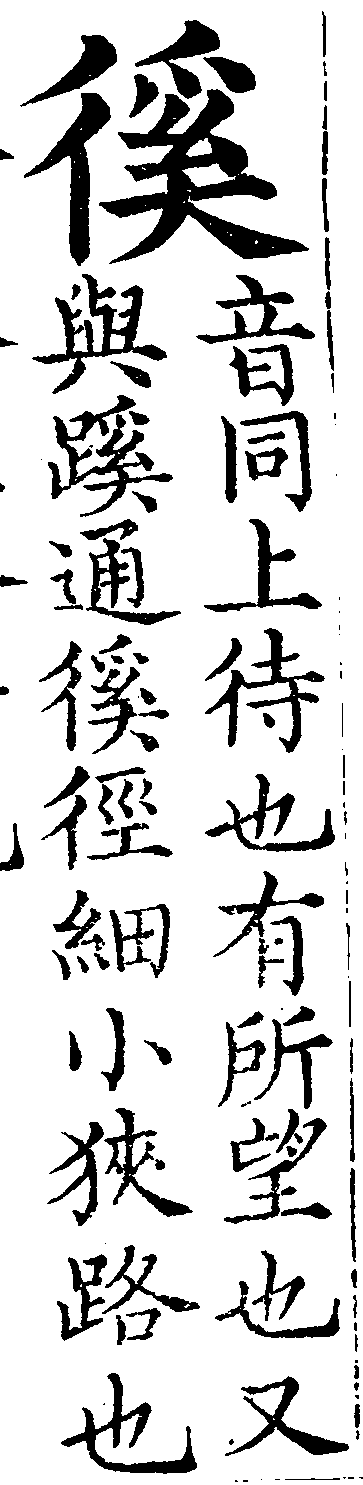 徯
音同上待也有所望也又
與蹊通徯徑細小狹路也